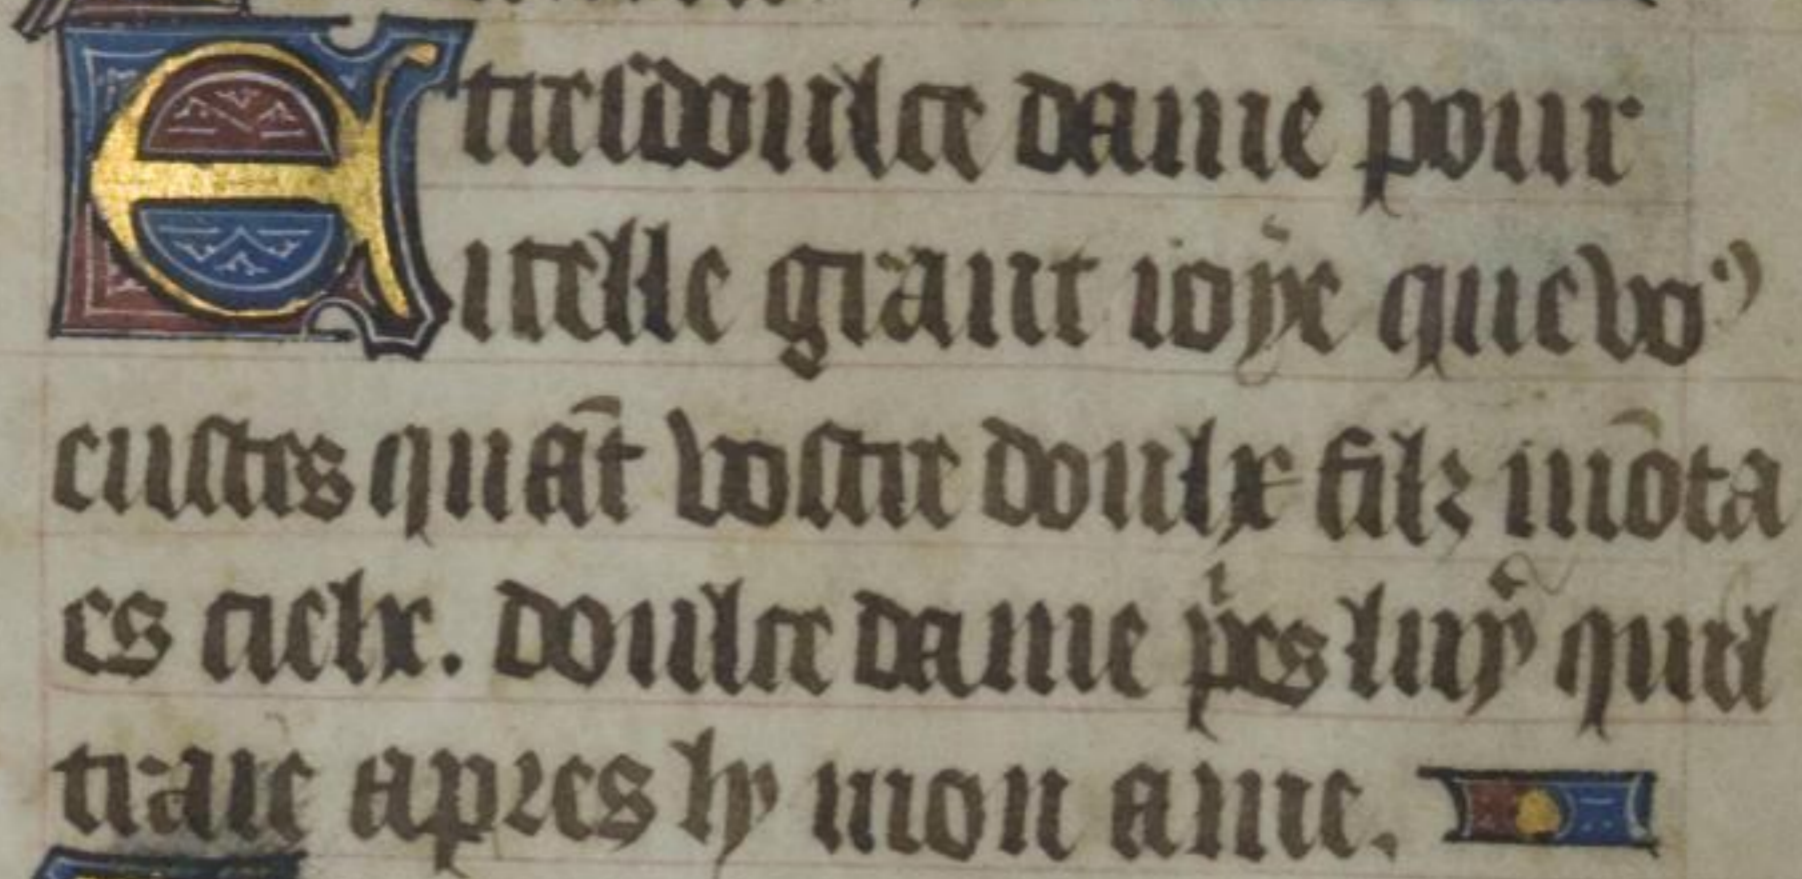 E tresdoulce dame pour
icelle grant ioye que voꝰ
eustes quāt vostre doulx filz mōta
es cielx. doulce dame p͛es luy quil
traie apres ly mon ame.